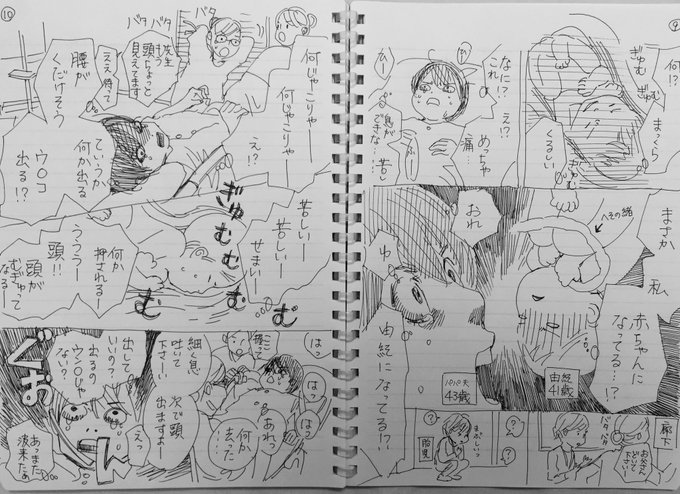 9
何!?
ぎゅむ
ぎゅむ
まっくら
くるしい
ぎゅむ
なに!?
これ
え!?
めっちゃ
痛
ひー
ひー
息が
できな…
苦し
まさか
私
赤ちゃんに
なってる…!?
へその緒
由紀
41歳
おれ
ゆ
由紀になってる!?
パパ夫
43歳
廊下
バタバタ
?
?
?
10
バタ
バタ
バタ
何じゃこりゃー
何じゃこりゃー
え!?
先生
もう
頭ちょっと
見えてます
ええ待って
腰が
くだけそう
ていうか
何か出る
ウ○コ
出る!?
苦しいー
苦しいー
せまいー
ぎゅ
むむ
む
む
何か
押されるー
うううー
頭!!
頭が
むぎゅって
なるー
はっ
はっ
はっ
握って
細く息
吐いて
下さーい
あれっ
何か
去った…
次で頭
出ますよー
えっ
出して
いいの?
出るの
ウ○コじゃ
ない?
ぐお
あっまた
波来たぁ